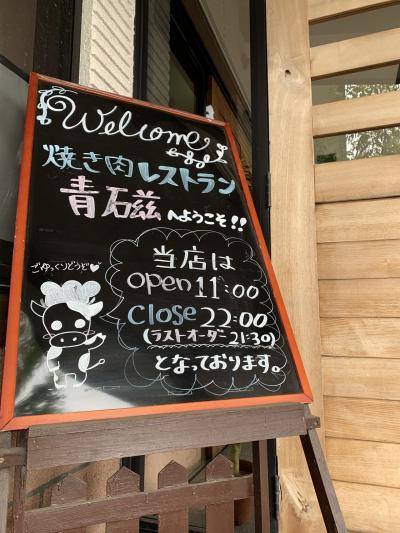 Welcome
焼き肉レストラン
青石兹
へようこそ!!
ごゆっくりどうぞ♡
当店は
open 11:00
close 22:00
(ラストオーダー 21:30)
となっております。